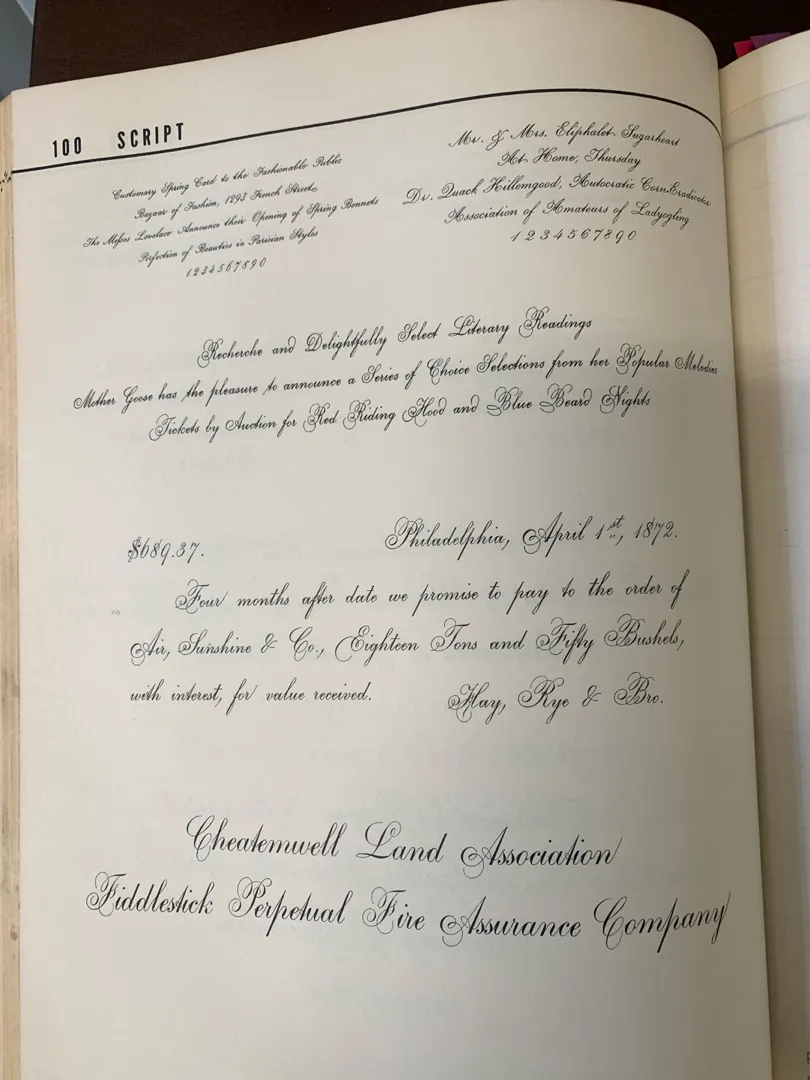 100 SCRIPT
Customary Spring Card to the Fashionable Public
Bazaar of Fashion, 1293 French Street
The Misses Lovelace Announce their Opening of Spring Bonnets
Perfection of Beauties in Parisian Styles
1234567890
Mr. & Mrs. Eliphalet Sugarheart
At Home, Thursday
Dr. Quack Hillemgood, Autocratic Corn Eradicator
Association of Amateurs of Ladyogling
1234567890
Recherche and Delightfully Select Literary Readings
Mother Goose has the pleasure to announce a Series of Choice Selections from her Popular Melodies
Tickets by Auction for Red Riding Hood and Blue Beard Nights
$689.37.
Philadelphia, April 1st, 1872.
Four months after date we promise to pay to the order of
Air, Sunshine & Co., Eighteen Tons and Fifty Bushels,
with interest, for value received.
Hay, Rye & Bro.
Cheatemwell Land Association
Fiddlestick Perpetual Fire Assurance Company